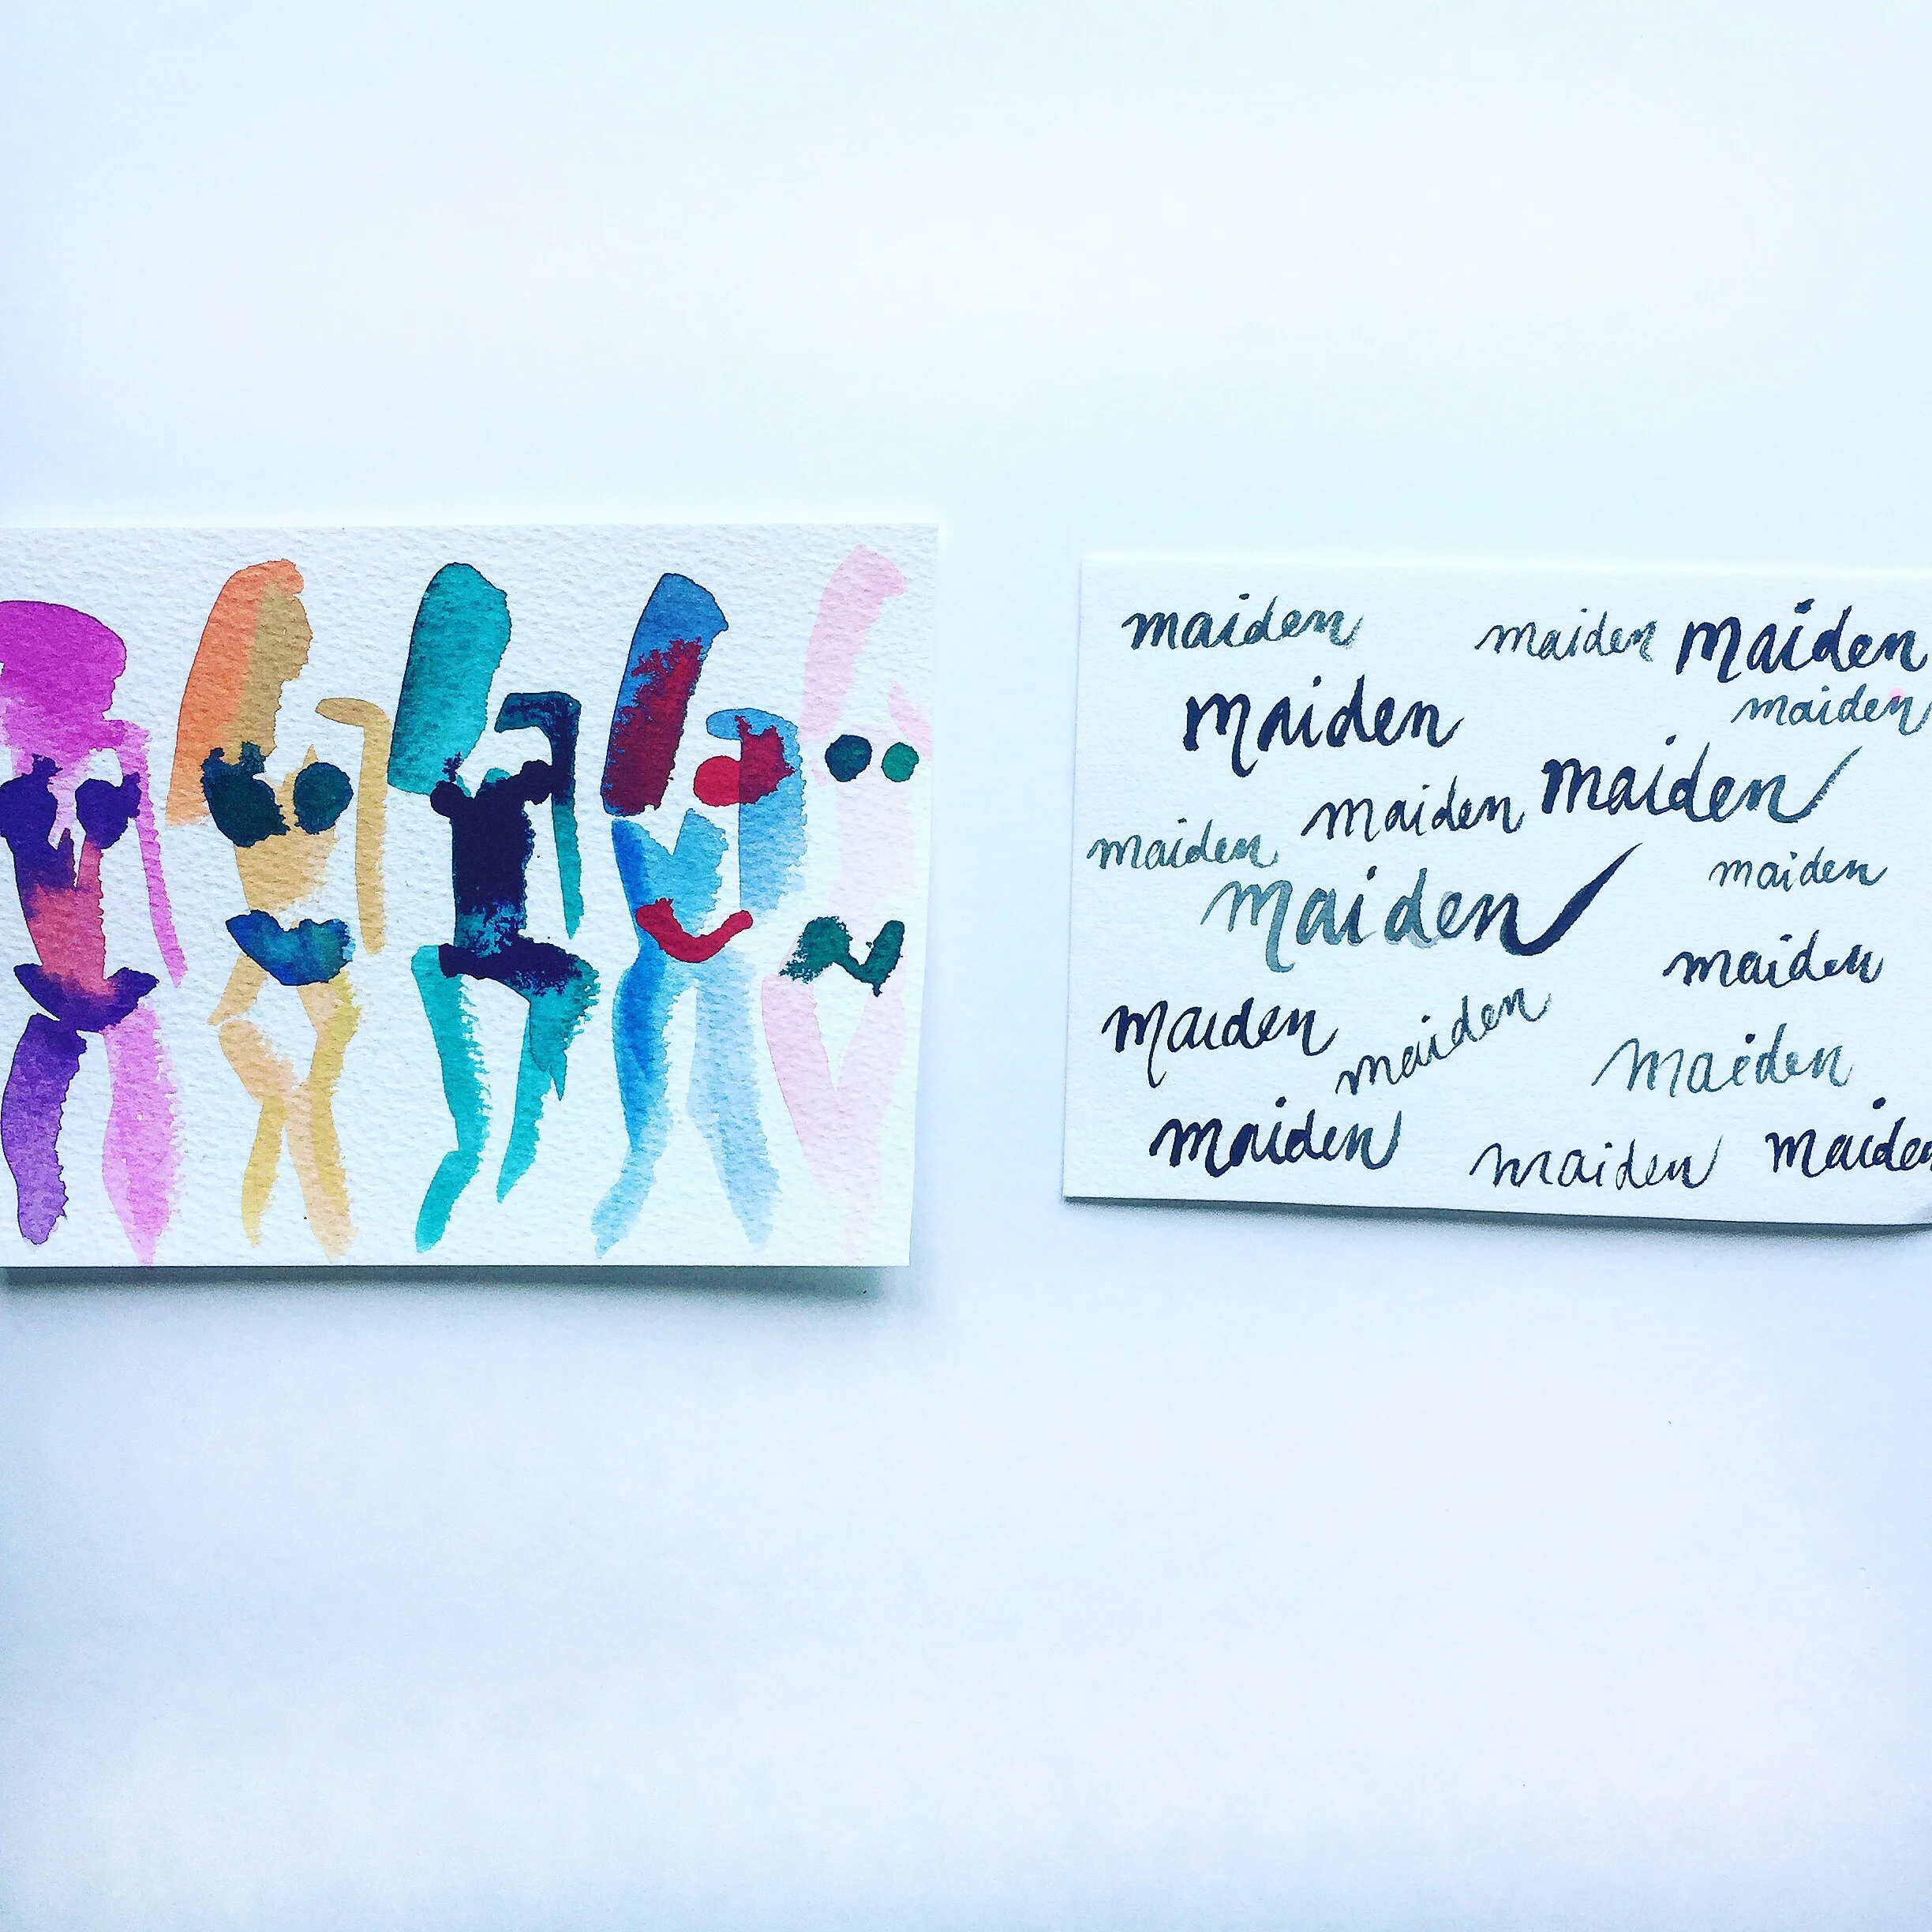 maiden maiden maiden
maiden maiden
maiden maiden
maiden maiden
maiden maiden
maiden
maiden maiden maiden
maiden maiden maiden